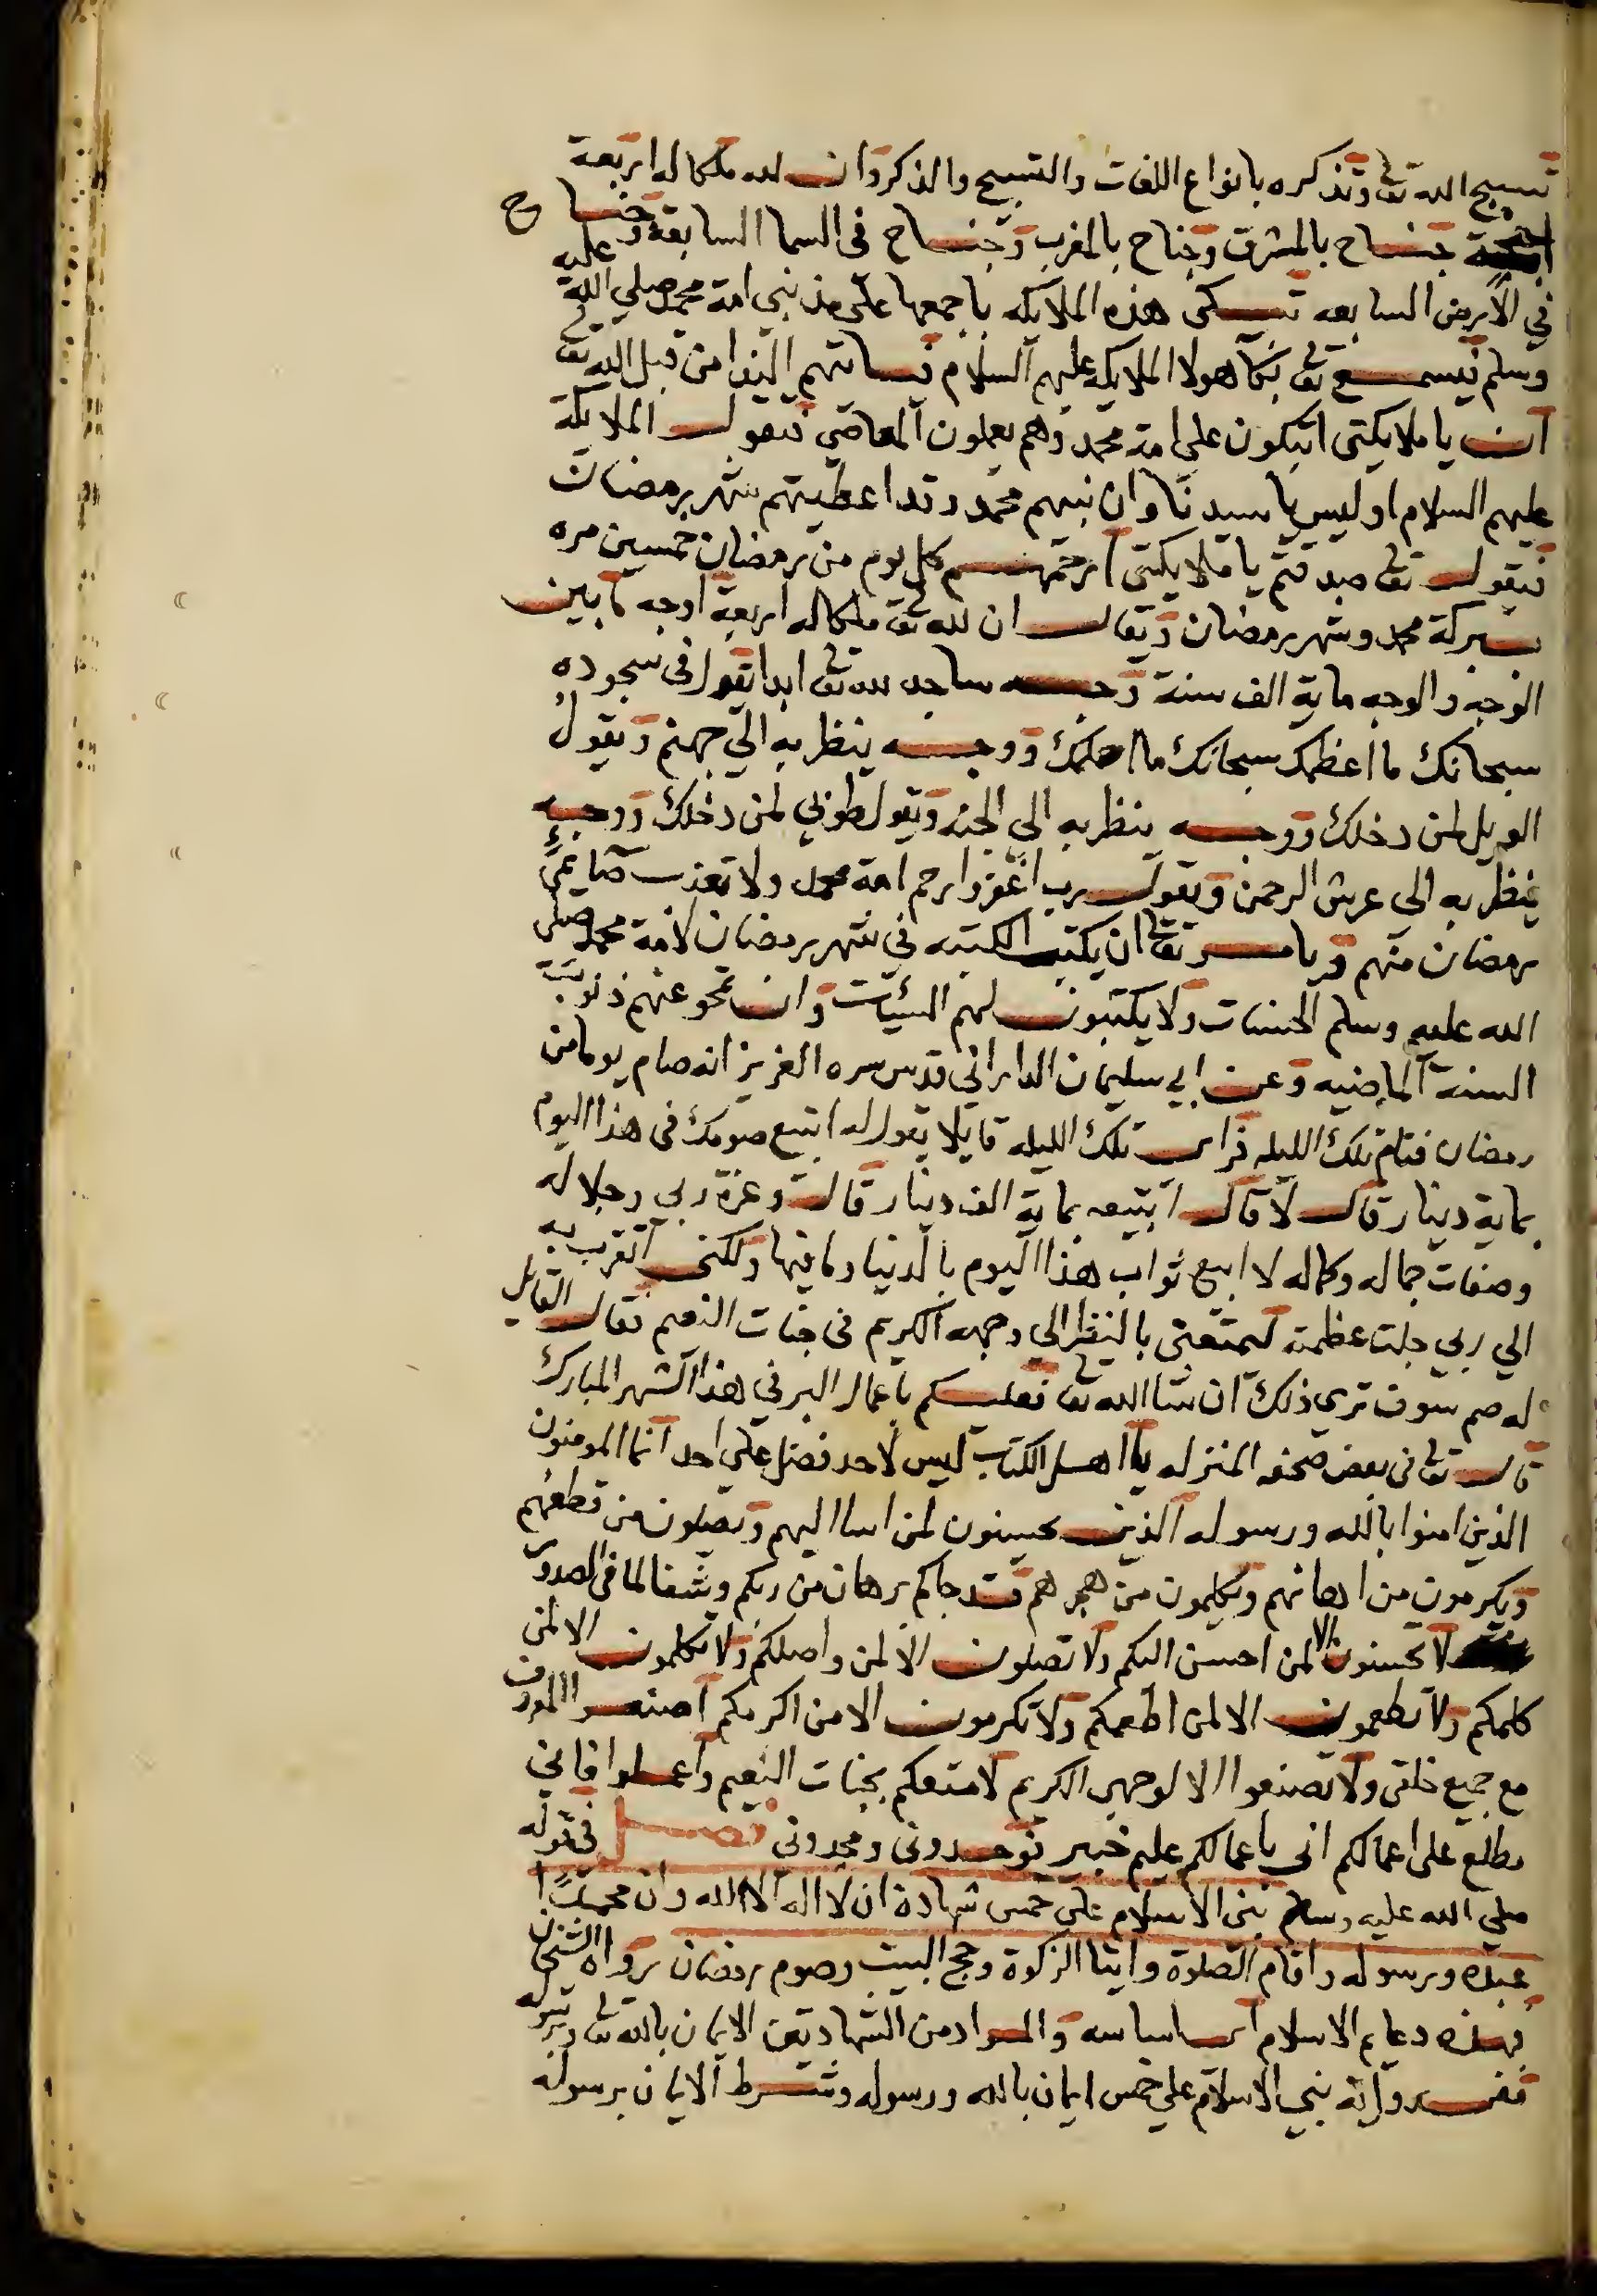 تسبح الله تع وتذكره بانواع اللغات والتسبيح والذكر وان لله ملكا له اربعة
اجنحة جناح بالمشرق وجناح بالمغرب وجناح فى السما السابعة وجناح
في الارض السابعه تبكى هذه الملايكه باجمعها على مذنبي امة محمد صلي الله عليه
وسلم فيسمع تع بكا هولا الملايكه عليهم السلام فياتيهم الندا من قبل الله تع
ان يا ملايكتى اتبكون على امة محمد وهم يعملون المعاصي فتقول الملايكة
عليهم السلام او ليس يا سيدنا وان نبيهم محمد وقد اعطيتهم شهر رمضان
فيقول تع صدقتم يا ملايكتى ارحمهم كل يوم من رمضان خمسين مره
ببركة محمد وشهر رمضان ويقال ان لله تع ملكا له اربعة اوجه ما بين
الوجه والوجه ماية الف سنة وجه ساجد لله تع ابدا يقول فى سجوده
سبحانك ما اعظمك سبحانك ما احلمك ووجه ينظر به الي جهنم ويقول
الويل لمن دخلك ووجه ينظر به الى الجنه ويقول طوبي لمن دخلك ووجه
ينظر به الى عرش الرحمن ويقول رب اغفر وارحم امة محمد ولا تعذب صايمى
رمضان منهم ويامر تع ان يكتب الكتبه في شهر رمضان لامة محمد صلى
الله عليه وسلم الحسنات ولا يكتبون لهم السئيات وان تمحو عنهم ذنوب
السنة الماضيه وعن ابي سليمان الداراني قدس سره العزيز انه صام يوما من
رمضان فنام تلك الليله فراى تلك الليله قايلا يقول له اتبيع صومك فى هذا اليوم
بماية دينار قال لا قال اتبيعه بماية الف دينار قال وعزة ربي وجلاله
وصفات جماله وكماله لا ابيع ثواب هذا اليوم بالدنيا وما فيها ولكنى اتقرب به
الي ربي جلت عظمته ليمتعني بالنظر الي وجهه الكريم فى جنات النعيم فقال القايل
له صم سوف تري ذلك ان شا الله تع فعليكم باعمال البر في هذا الشهر المبارك
قال تع فى بعض صحفه المنزله يا اهل الكتاب ليس لاحد فضل علي احد انما المومنون
الذين امنوا بالله ورسوله الذين يحسنون لمن اسا اليهم ويصلون من قطعهم
ويكرمون من اهانهم ويكلمون من هجرهم قد جاكم برهان من ربكم وشفا لما فى الصدور
لا تحسنون الا لمن احسن اليكم ولا تصلون الا لمن واصلكم ولا تكلمون الا لمن
كلمكم ولا تطعمون الا لمن اطعمكم ولا تكرمون الا من اكرمكم اصنعوا المعروف
مع جميع خلقى ولا تصنعوا الا لوجهى الكريم لامتعكم بجنات النعيم واعملوا فاني
مطلع على اعمالكم اني باعمالكم عليم خبير توحدونى ومجدونى فصل فى قوله
صلي الله عليه وسلم بنى الاسلام علي خمس شهادة ان لا اله الا الله وان محمدا
عبده ورسوله واقام الصلوة وايتا الزكوة وحج البيت وصوم رمضان رواه الشيخان
فهذه دعايم الاسلام اى اساسه والمراد من الشهادتين الايمان بالله تع وبرسوله
ففى رواية بني الاسلام علي خمس ايمان بالله ورسوله وشرط الايمان برسوله